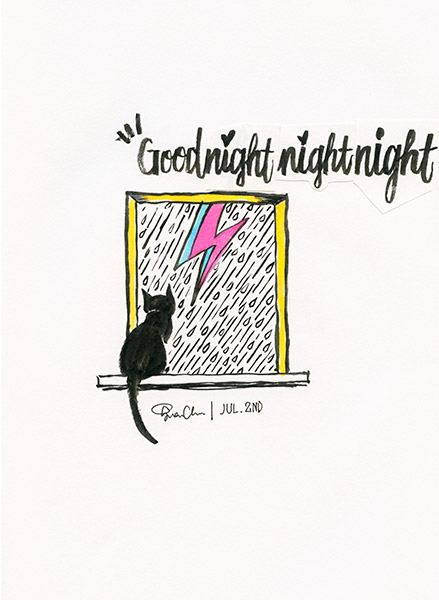 Goodnight nightnight
JUL. 2ND